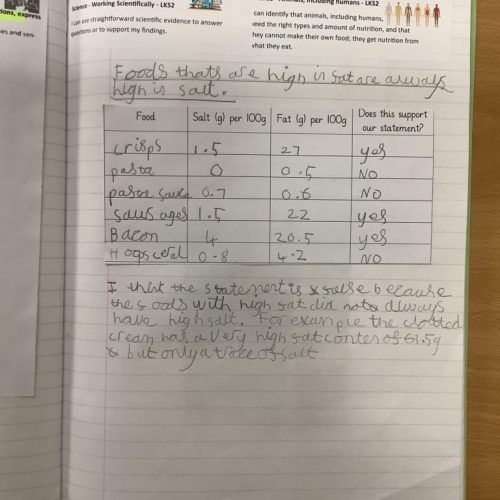 ions, express
es and sen
Science - Working Scientifically - LKS2
I can use straightforward scientific evidence to answer
questions or to support my findings.
including humans - LKS2
can identify that animals, including humans,
need the right types and amount of nutrition, and that
hey cannot make their own food; they get nutrition from
what they eat.
Foods thats are high in fat are always
high is salt.
Food Salt (g) per 100g Fat (g) per 100g Does this support our statement?
crisps 1.5 27 yes
pasta 0 0.5 NO
pasta sauce 0.7 0.6 NO
sausages 1.5 22 yes
Bacon 4 20.5 yes
0.8 4.2 NO
I think the statement is false because
the foods with high fat did not always
have high salt. For example the clotted
cream has a very high fat conten of 63.5g
but only a trace of salt